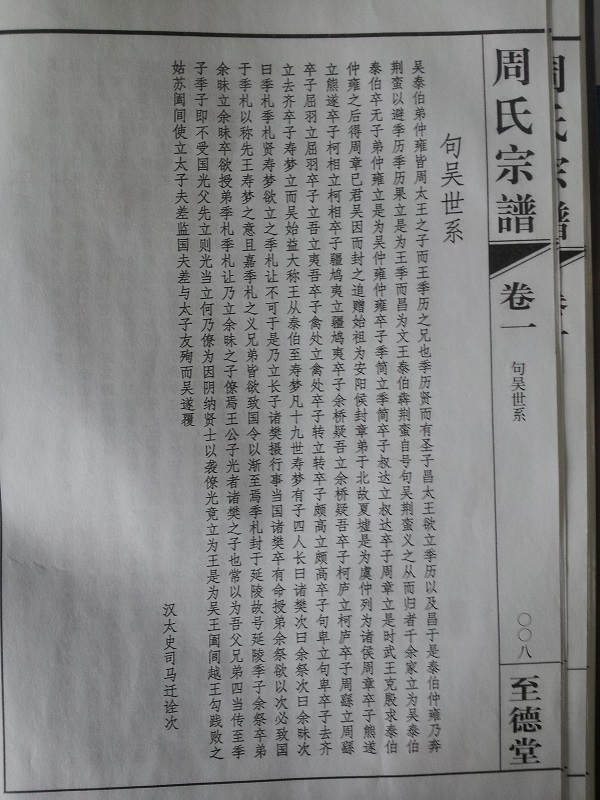 周氏宗譜
卷一
句吴世系
〇〇八
至德堂
句吴世系
吴泰伯弟仲雍皆周太王之子而王季历之兄也季历贤而有圣子昌太王欲立季历以及昌于是泰伯仲雍乃奔
荆蛮以避季历季历果立是为王季而昌为文王泰伯犇荆蛮自号句吴荆蛮义之从而归者千余家立为吴泰伯
泰伯卒无子弟仲雍立是为吴仲雍仲雍卒子季简立季简卒子叔达立叔达卒子周章立是时武王克殷求泰伯
仲雍之后得周章已君吴因而封之追赠始祖为安阳侯封章弟于北故夏墟是为虞仲列为诸侯周章卒子熊遂
立熊遂卒子柯相立柯相卒子疆鸠夷立疆鸠夷卒子余桥疑吾立余桥疑吾卒子柯庐立柯庐卒子周繇立周繇
卒子屈羽立屈羽卒子夷吾立夷吾卒子禽处立禽处卒子转立转卒子颇高立颇高卒子句卑立句卑卒子去齐
立去齐卒子寿梦立而吴始益大称王从泰伯至寿梦凡十九世寿梦有子四人长曰诸樊次曰余祭次曰余昧次
曰季札季札贤寿梦欲立之季札让不可于是乃立长子诸樊摄行事当国诸樊卒有命授弟余祭欲以次必致国
于季札以称先王寿梦之意且嘉季札之义兄弟皆欲致国令以渐至焉季札封于延陵故号延陵季子余祭卒弟
余昧立余昧卒欲授弟季札季札让乃立余昧之子僚焉王公子光者诸樊之子也常以为吾父兄弟四当传至季
子季子即不受国光父先立则光当立何乃僚为因阴纳贤士以袭僚光竟立为王是为吴王阖闾越王勾践败之
姑苏阖闾使立太子夫差监国夫差与太子友殉而吴遂覆
汉太史司马迁诠次